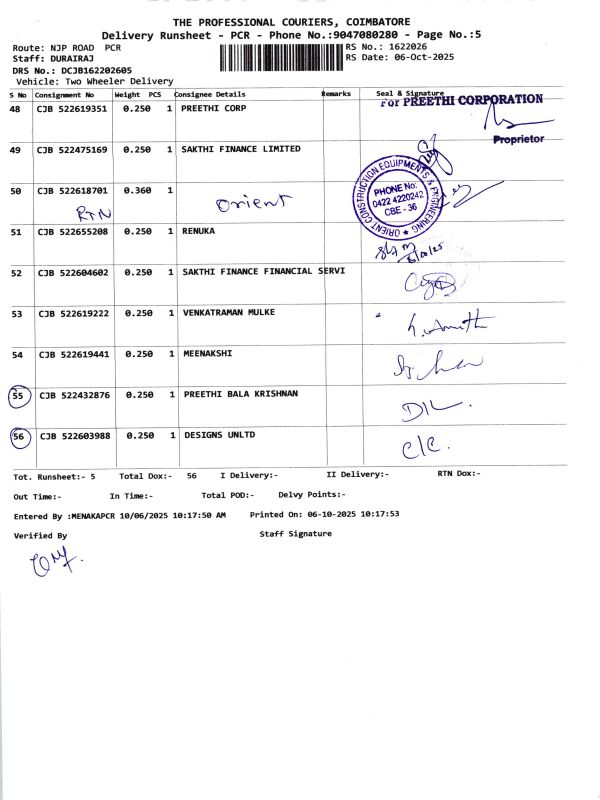 THE PROFESSIONAL COURIERS, COIMBATORE
Delivery Runsheet - PCR - Phone No.:9047080280 - Page No.:5
Route: NJP ROAD PCR RS No.: 1622026
Staff: DURAIRAJ RS Date: 06-Oct-2025
DRS No.: DCJB162202605
Vehicle: Two Wheeler Delivery
S No Consignment No Weight PCS Consignee Details Remarks Seal & Signature
48 CJB 522619351 0.250 1 PREETHI CORP
For PREETHI CORPORATION
Proprietor
49 CJB 522475169 0.250 1 SAKTHI FINANCE LIMITED
50 CJB 522618701 0.360 1
RTN Orient
ORIENT CONSTRUCTION EQUIPMENTS & ENGINEERING
PHONE No:
0422 4220242
CBE - 36
51 CJB 522655208 0.250 1 RENUKA
52 CJB 522604602 0.250 1 SAKTHI FINANCE FINANCIAL SERVI
53 CJB 522619222 0.250 1 VENKATRAMAN MULKE
54 CJB 522619441 0.250 1 MEENAKSHI
55 CJB 522432876 0.250 1 PREETHI BALA KRISHNAN
D/L.
56 CJB 522603988 0.250 1 DESIGNS UNLTD
C/C.
Tot. Runsheet:- 5 Total Dox:- 56 I Delivery:- II Delivery:- RTN Dox:-
Out Time:- In Time:- Total POD:- Delvy Points:-
Entered By :MENAKAPCR 10/06/2025 10:17:50 AM Printed On: 06-10-2025 10:17:53
Verified By Staff Signature